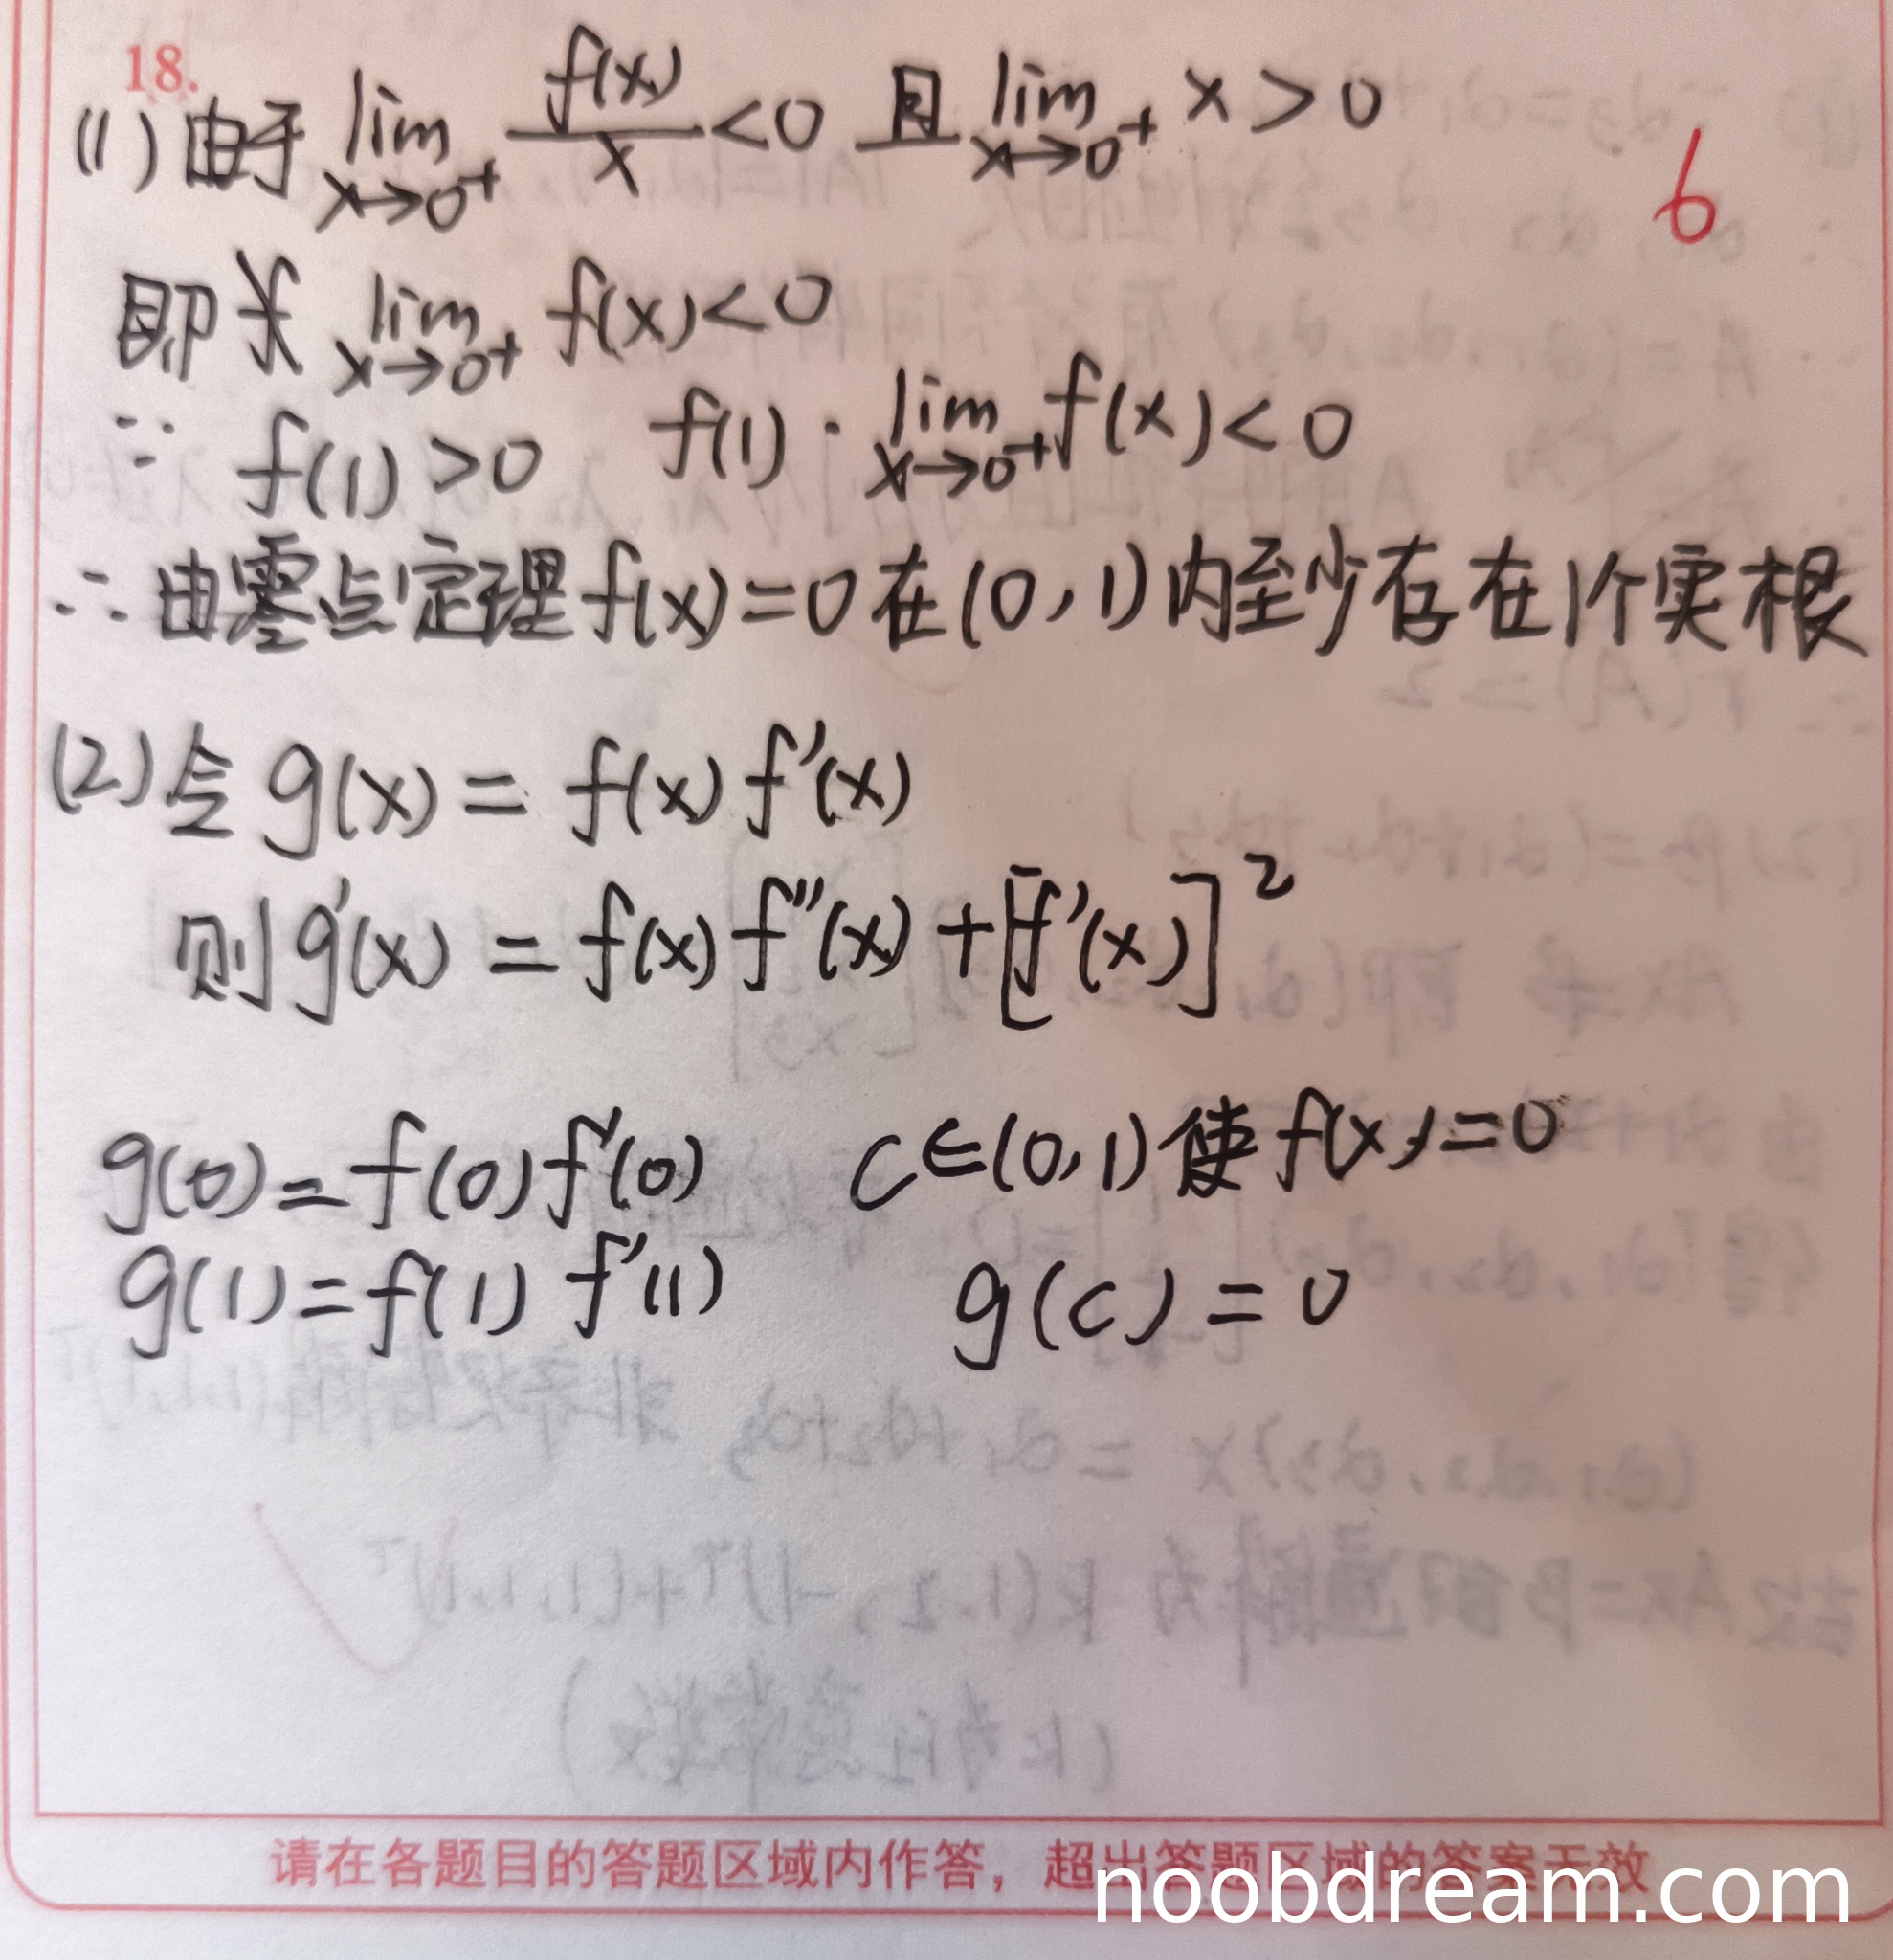 18.
(1) 由于 lim x→0⁺ f(x)/x <0 且 lim x→0⁺ x > 0
6
即 lim x→0⁺ f(x)<0
∵ f(1)>0 f(1)· lim x→0⁺ f(x)<0
∴ 由零点定理 f(x)=0 在(0,1)内至少存在1个实根
(2) 令 g(x) = f(x) f'(x)
则 g'(x) = f(x) f''(x) + [f'(x)]²
g(0) = f(0) f'(0) c∈(0,1) 使 f(x)=0
g(1) = f(1) f'(1) g(c) = 0
请在各题目的答题区域内作答，超出答题区域的答案无效
noobdream.com